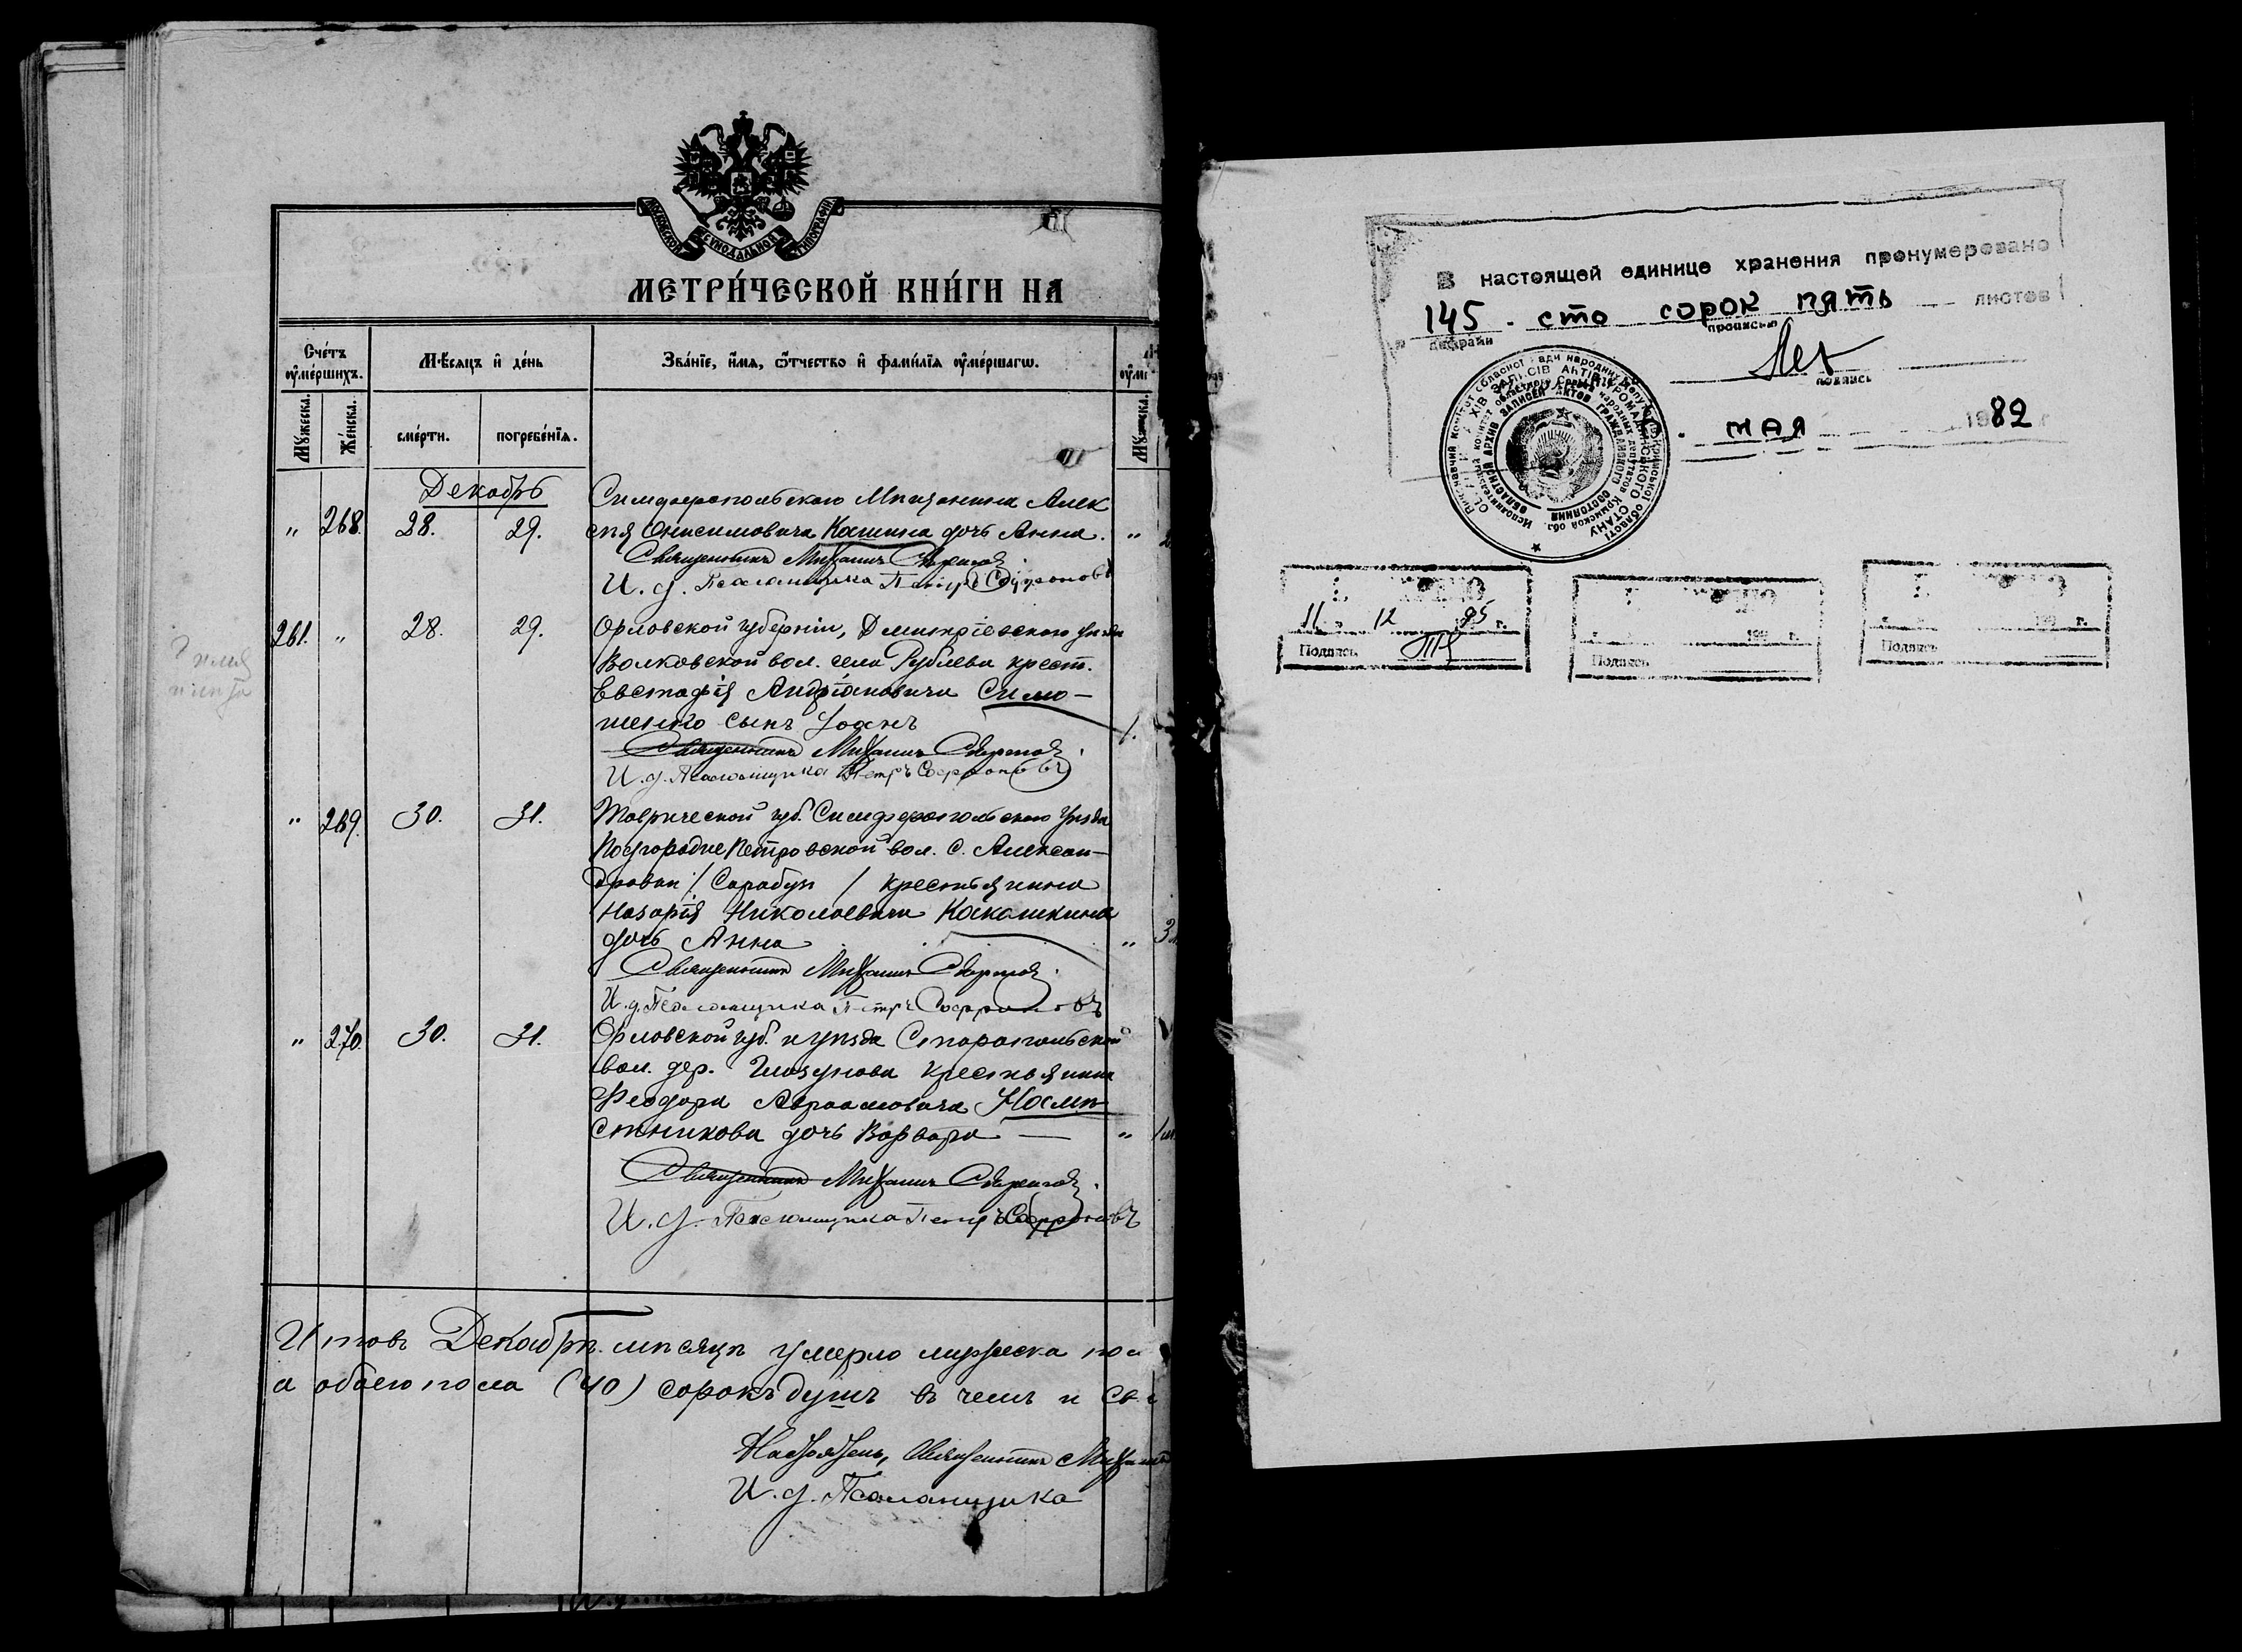 МОСКОВСКОЙ СѴНОДАЛЬНОЙ ТИПОГРАФІИ
МЕТРИ́ЧЕСКОЙ КНИ́ГИ НА
Сче́тъ ѹ҆ме́ршихъ.
Мѣ́сяцъ и҆ де́нь
Зва́нїе, и҆́мѧ, ѻ҆́тчество и҆ фами́лїѧ ѹ҆ме́ршагѡ.
Мꙋ́жеска.
Же́нска.
сме́рти.
погребе́нїѧ.
Мꙋ́жеска.
Декабрь
Симферопольскаго Мѣщанина Алек
" 268. 28. 29. сѣя Онисимовича Кашина дочь Анна. "
Священникъ Михаилъ
И. д. Псаломщика Петръ Софроновъ
261. " 28. 29. Орловской губерніи, Дмитріевскаго уѣзда
Волковской вол. села Рублева крест.
Евстафія Андріановича Симо-
шенко сынъ Іоанъ 1.
Священникъ Михаилъ
И. д. Псаломщика Петръ Софроновъ
" 269. 30. 31. Таврической губ. Симферопольскаго уѣзда
Подгородне Петровской вол. с. Алексан-
дровки / Сарабуз / крестьянина
Назарія Николаевича Какашкина
дочь Анна "
Священникъ Михаилъ
И. д. Псаломщика Петръ Софроновъ
" 270. 30. 31. Орловской губ. и уѣзда
вол. дер. Глазунова крестьянина
Феодора Авраамовича Посмѣ-
стникова дочь Варвара — "
Священникъ Михаилъ
И. д. Псаломщика Петръ Софроновъ
Итого въ Декабрѣ мѣсяцѣ умерло мужеска пол
а обоего пола (40) сорокъ душъ въ чемъ и св
Настоятель, Священникъ Михаилъ
И. д. Псаломщика
В настоящей единице хранения пронумеровано
145 - сто сорок пять листов
цифрами прописью
подпись
мая 1982 г
ОБЛАСТНОЙ АРХИВ ЗАПИСЕЙ АКТОВ ГРАЖДАНСКОГО СОСТОЯНИЯ
11 12 95 г.
Подпись
199 г.
Подпись
199 г.
Подпись